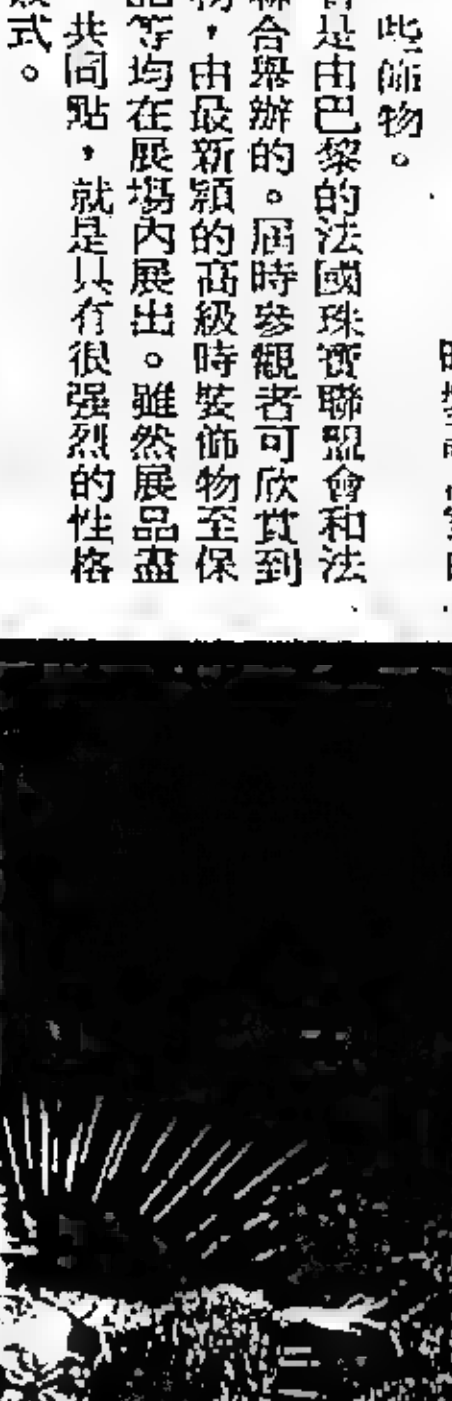 些飾物。
會是由巴黎的法國珠寶聯盟會和法
聯合舉辦的。屆時參觀者可欣賞到
物，由最新穎的高級時裝飾物至保
品等均在展場內展出。雖然展品盡
共同點，就是具有很强烈的性格
式。